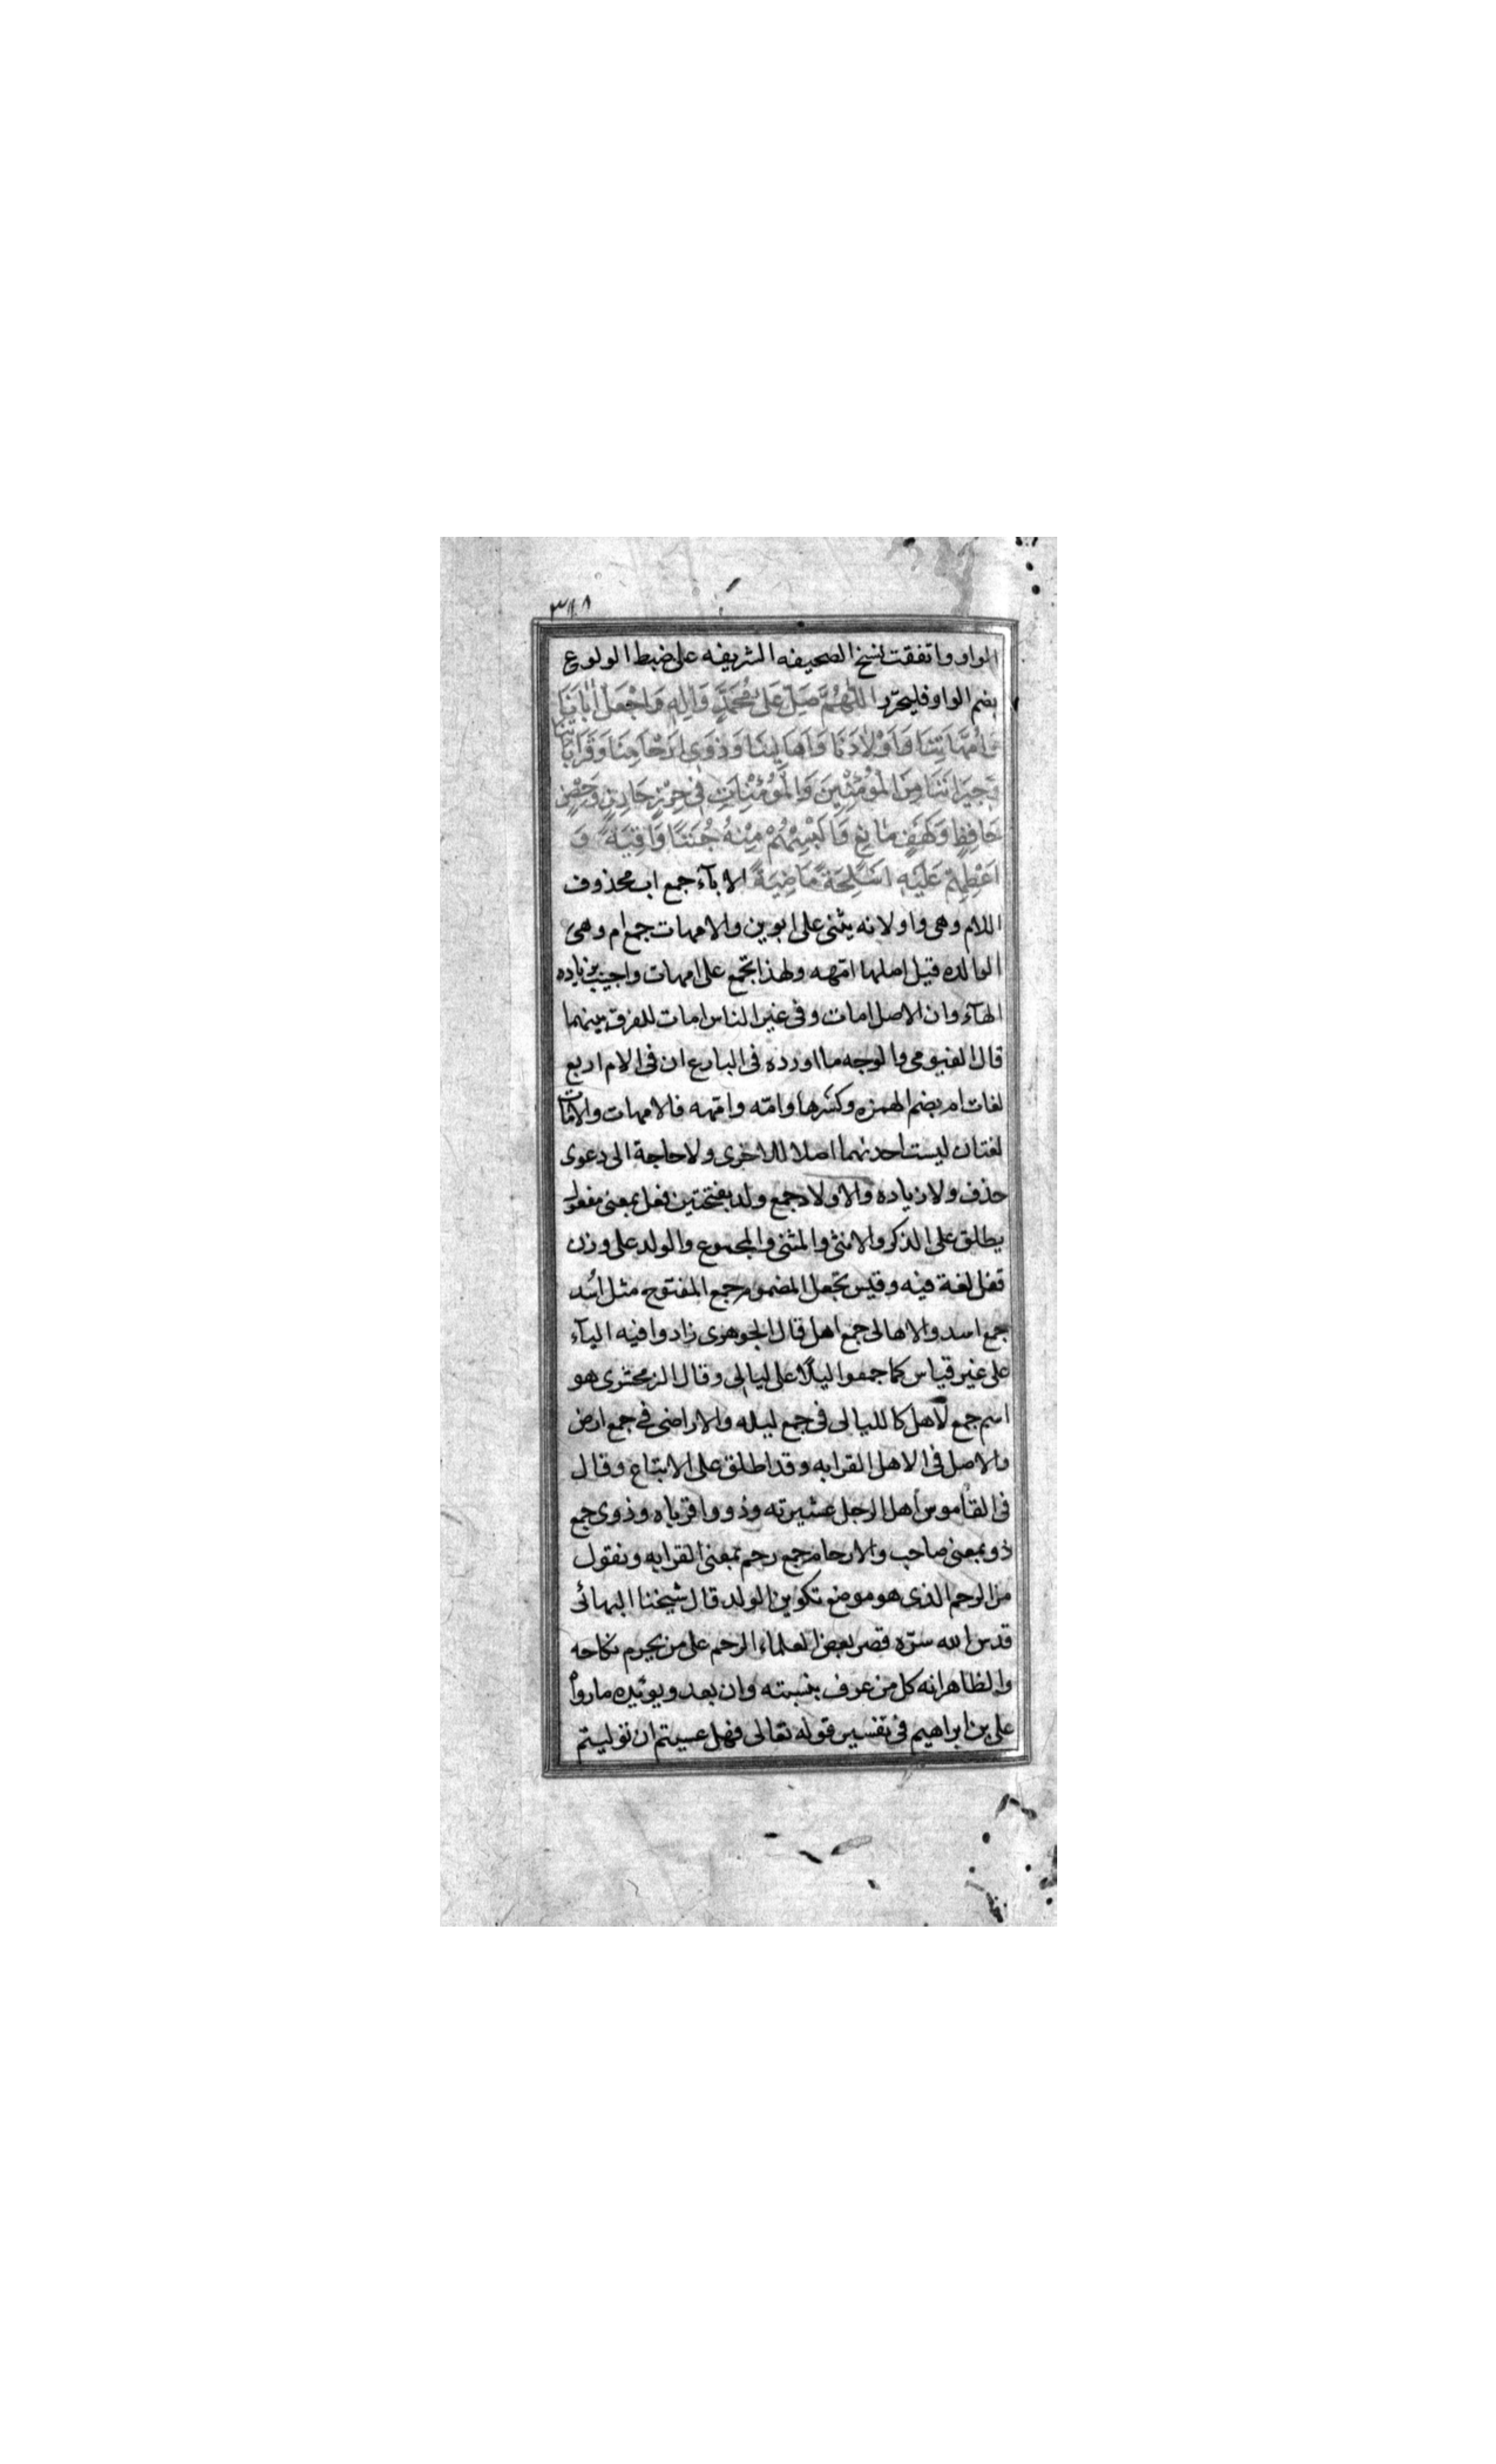 ٣١٨
الواو واتفقت نسخ الصحيفه الشريفه على ضبط الولوع
بضم الواو فليحرّر اللّٰهُمَّ صَلِّ عَلىٰ مُحَمَّدٍ وَاٰلِهِ وَاجْعَلْ اٰبٰاءَنَا
وَاُمَّهَاتِنَا وَاَوْلاٰدَنَا وَاَهَالِينَا وَذَوِي اَرْحَامِنَا وَقَرَابَاتِنَا
وَجِيرَانَنَا مِنَ الْمُؤْمِنِينَ وَالْمُؤْمِنَاتِ فِي حِرْزٍ حَارِزٍ وَحِصْنٍ
حَافِظٍ وَكَهْفٍ مَانِعٍ وَاَلْبِسْهُمْ مِنْهُ جُنَنًا وَاقِيَةً وَ
اَعْطِهِمْ عَلَيْهِ اَسْلِحَةً مَاضِيَةً الاباۤء جمع اب محذوف
اللام وهى واو لانه يثنى على ابوين والامهات جمع ام وهى
الوالده قيل اصلها امهه ولهذا تجمع على امهات واجيب بزياده
الهاۤء وان الاصل امات وفى غير الناس امات للفرق بينهما
قال الفيومى والوجه ما اورده فى البارع ان فى الام اربع
لغات ام بضم الهمزه وكسرها وامّه وامّهه فالامهات والامّات
لغتان ليست احدىهما اصلا للاخرى ولا حاجة الى دعوى
حذف ولا زياده والاولاد جمع ولد بفتحتين فعل بمعنى مفعول
يطلق على الذكر والانثى والمثنى والمجموع والولد على وزن
قفل لغة فيه وقيس تجعل المضموم جمع المفتوح مثل اُسد
جمع اسد والاهالى جمع اهل قال الجوهرى زادوا فيه الياۤء
على غير قياس كما جمعوا ليلًا على ليالى وقال الزمخشرى هو
اسم جمع لاهل كالليالى فى جمع ليله والاراضى فى جمع ارض
والاصل فى الاهل القرابه وقد اطلق على الاتباع وقال
فى القاموس أهل الرجل عشيرته وذووا قرباه وذوى جمع
ذو بمعنى صاحب والارحام جمع رحم بمعنى القرابه ونقول
من الرحم الذى هو موضع تكوين الولد قال شيخنا البهائى
قدس الله سرّه قصر بعض العلماء الرحم على من يحرم نكاحه
والظاهر انه كل من عرف بنسبته وان بعد ويوئيده ما رواه
على بن ابراهيم فى تفسير قوله تعالى فهل عسيتم ان توليتم